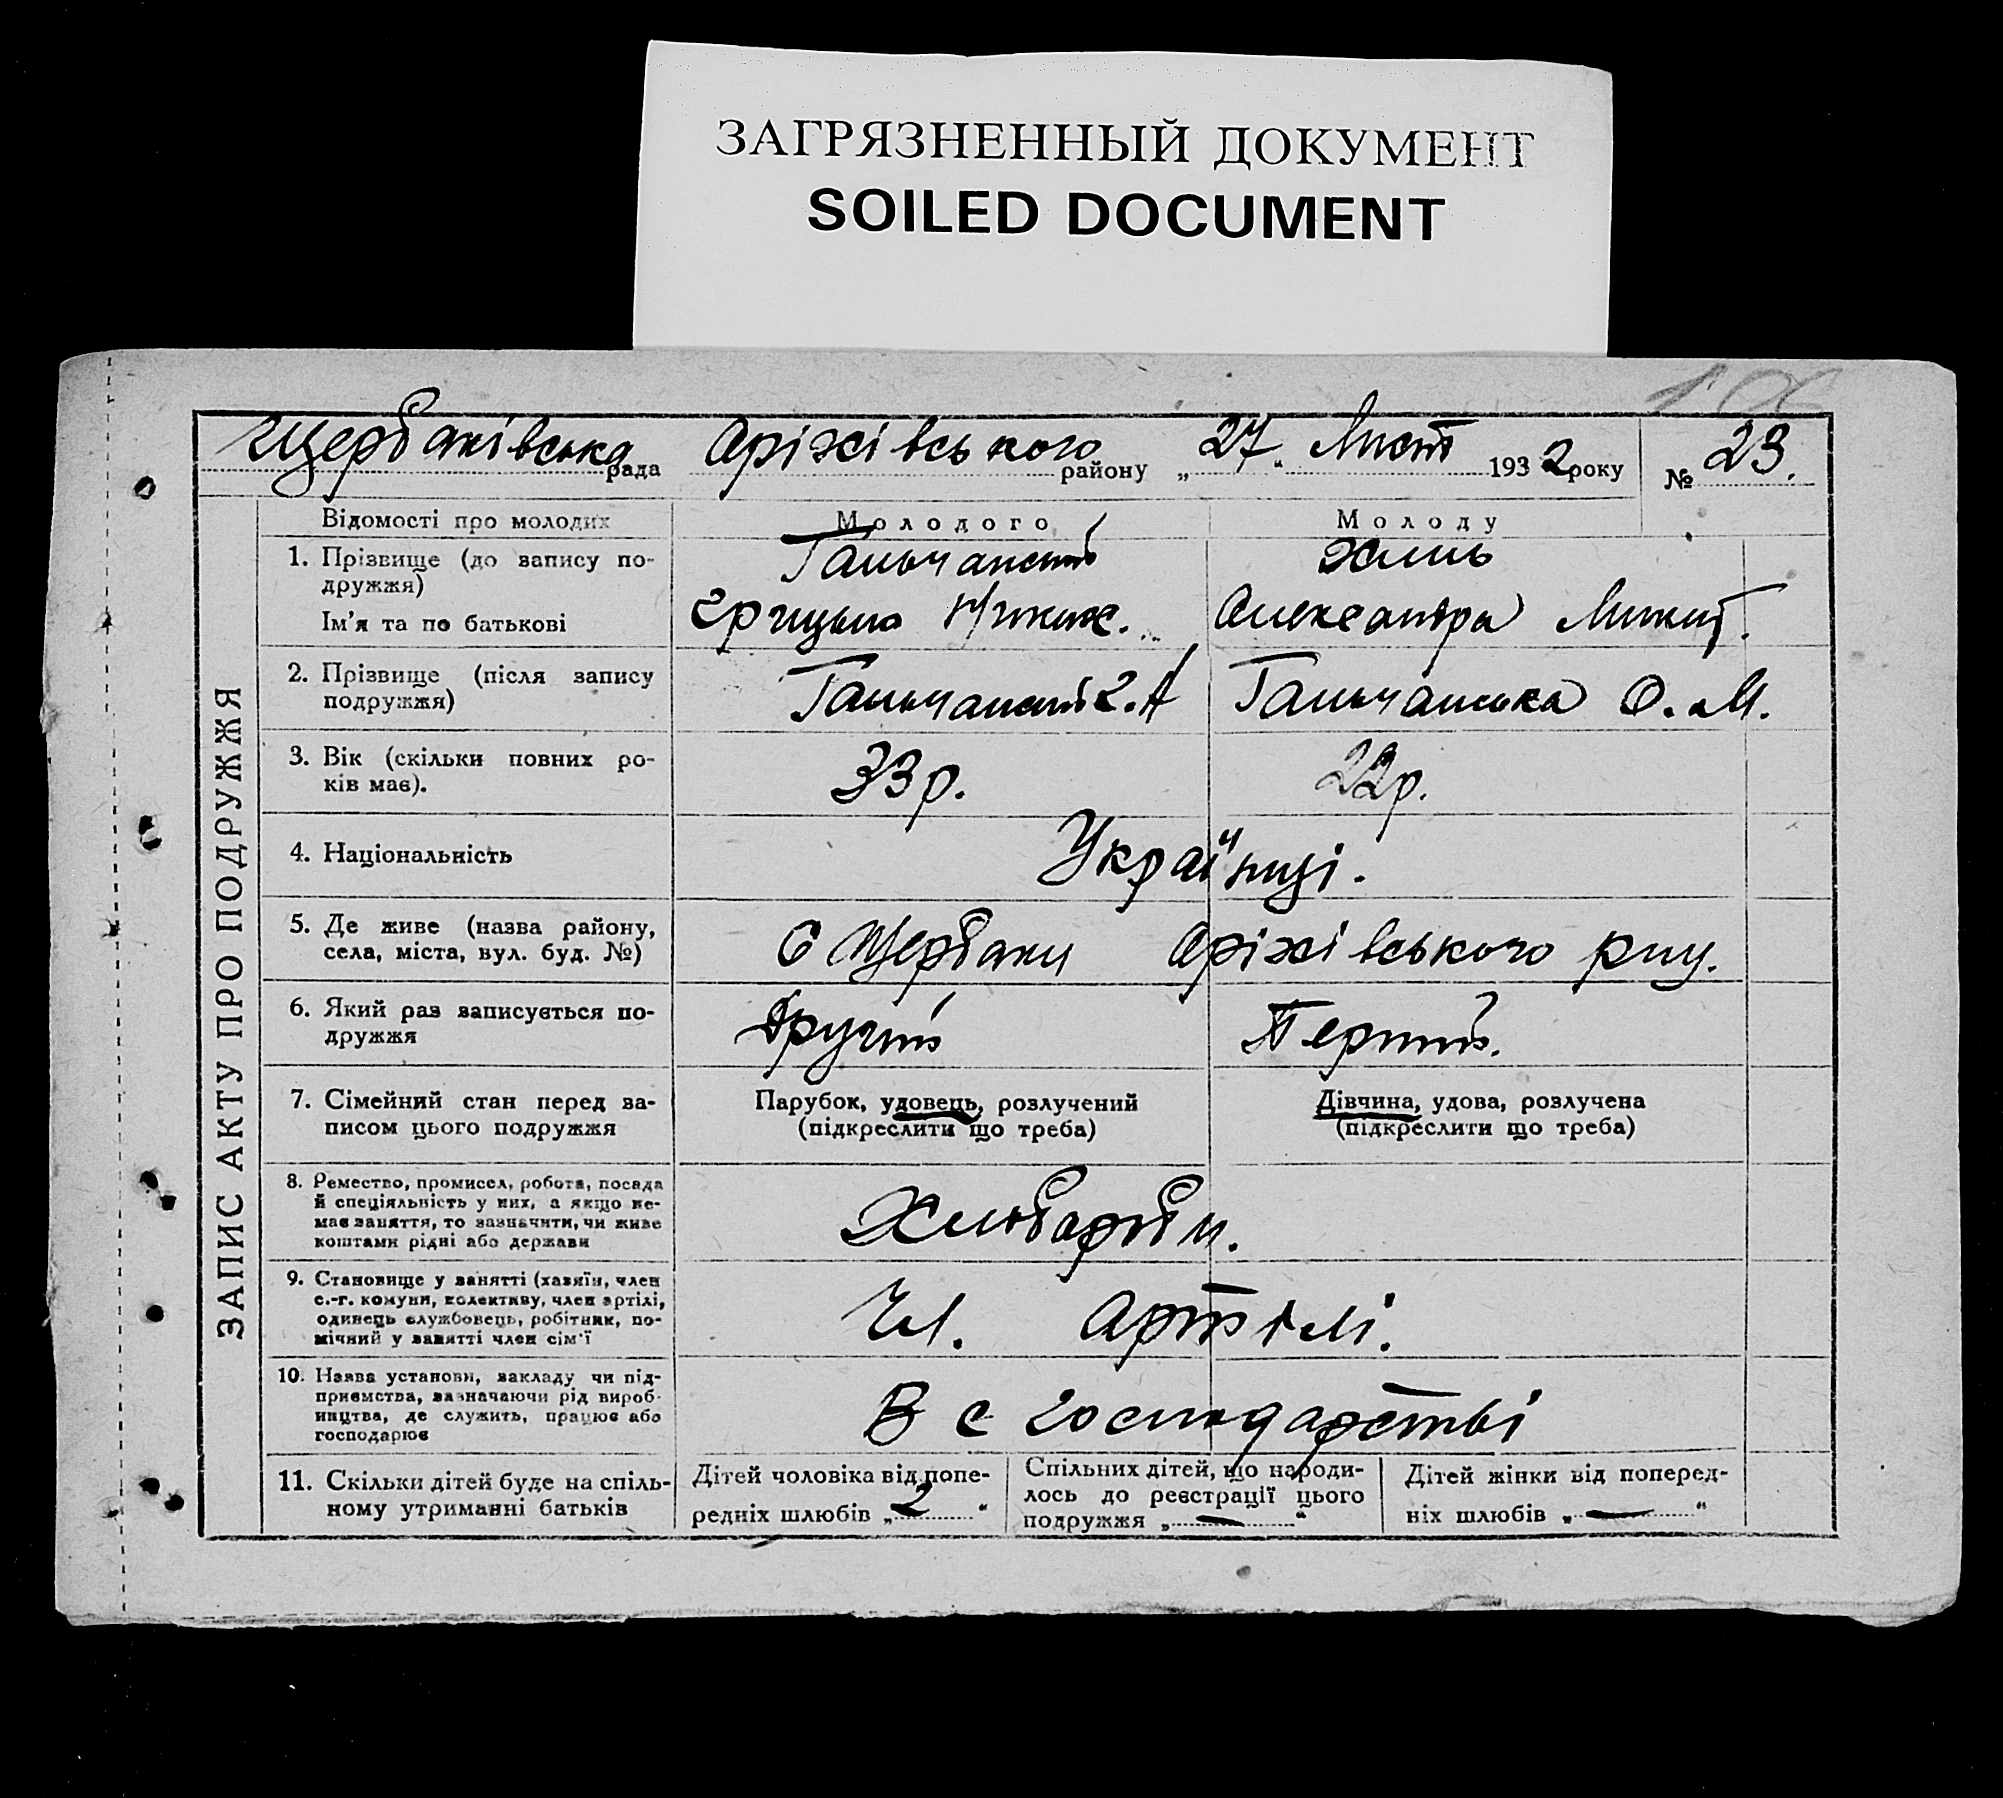 ЗАГРЯЗНЕННЫЙ ДОКУМЕНТ
SOILED DOCUMENT
Щербаківська рада Оріхівського району „27„ Лист 1932 року № 23.
ЗАПИС АКТУ ПРО ПОДРУЖЖЯ
Відомості про молодих Молодого Молоду
1. Прізвище (до запису по-
дружжя)
Гальчанский
Ім'я та по батькові
Грицько Олександра Микит.
2. Прізвище (після запису
подружжя)
Гальчанский Гальчанська О. М.
3. Вік (скільки повних ро-
ків має).
33р. 22р.
4. Національність
Українці.
5. Де живе (назва району,
села, міста, вул. буд. №)
С Щербаки Оріхівського рну.
6. Який раз записується по-
дружжя
Другий Перший.
7. Сімейний стан перед за-
писом цього подружжя
Парубок, удовець, розлучений
(підкреслити що треба)
Дівчина, удова, розлучена
(підкреслити що треба)
8. Ремество, промисел, робота, посада
й спеціяльність у них, а якщо не-
має заняття, то зазначити, чи живе
коштами рідні або держави
Хлібароби.
9. Становище у занятті (хазяїн, член
с.-г. комуни, колективу, член артілі,
одинець службовець, робітник, по-
мічний у занятті член сім'ї
Чл. Артілі.
10. Назва установи, закладу чи під-
приємства, зазначаючи рід вироб-
ництва, де служить, працює або
господарює
В с господарстві
11. Скільки дітей буде на спіль-
ному утриманні батьків
Дітей чоловіка від попе-
редніх шлюбів „ 2 “
Спільних дітей, що народи-
лось до реєстрації цього
подружжя „ — “
Дітей жінки від поперед-
ніх шлюбів „ — “